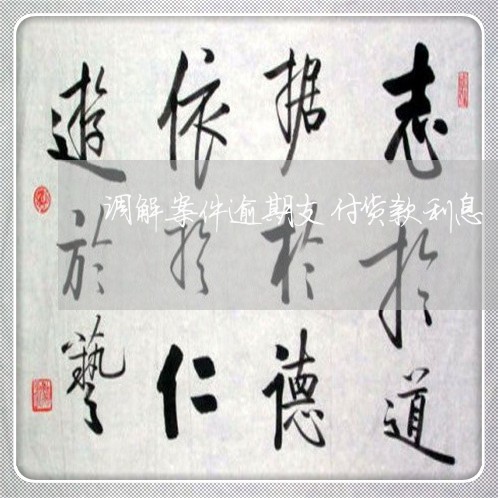 志於道
据於德
依於仁
遊於藝
调解案件逾期支付货款利息